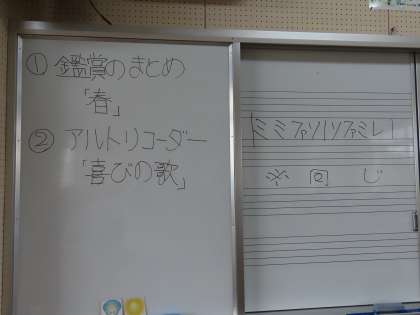 ① 鑑賞のまとめ
「春」
② アルトリコーダー
「喜びの歌」
|ミミファソ|ソファミレ|
※ 回 じ